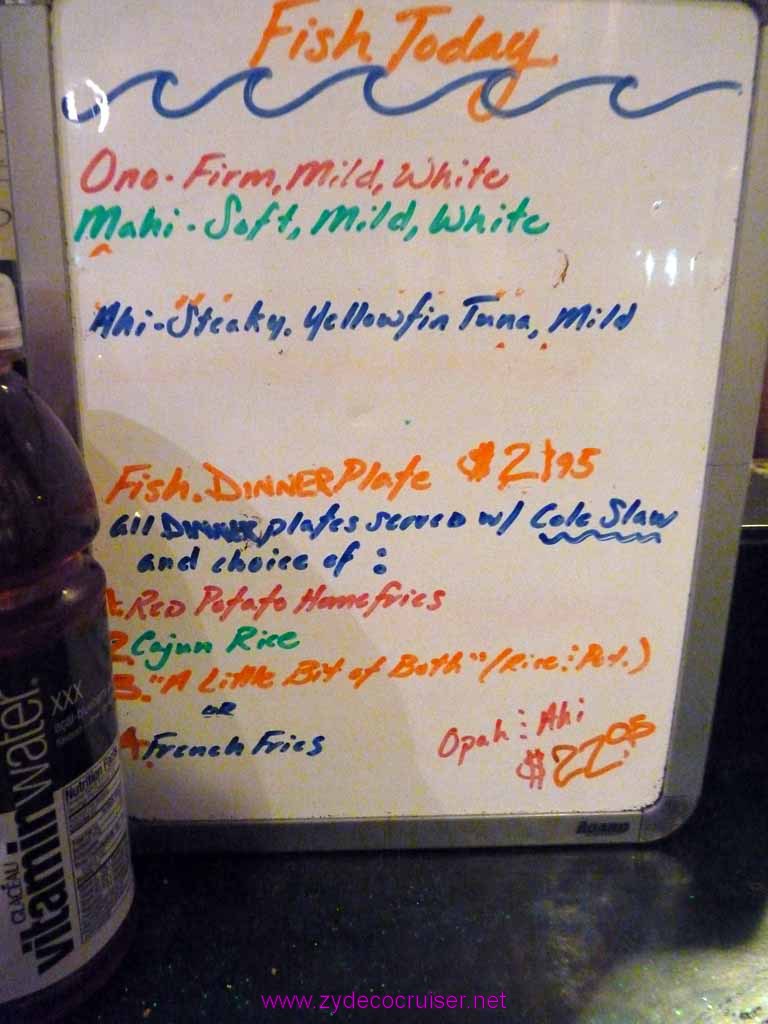 Fish Today
Ono - Firm, Mild, White
Mahi - Soft, Mild, White
Ahi - Steaky, Yellowfin Tuna, Mild
Fish. DINNER Plate $21.95
all DINNER plates served w/ Cole Slaw
and choice of :
1. Red Potato Homefries
2 Cajun Rice
3. "A Little Bit of Both" (Rice : Pot.)
OR
4. French Fries
Opah : Ahi
$22.95
XXX
GLACÉAU
vitaminwater.
Nutrition Facts
www.zydecocruiser.net